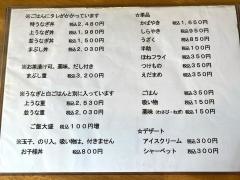 ※ごはんにタレがかかっています
特うなぎ丼 税込2,480円
上うなぎ丼 税込1,980円
並うなぎ丼 税込1,500円
まぶし丼 税込2,530円
※お茶漬け可、薬味、だし付き
まぶし重 税込3,200円
※うなぎと白ごはんと別に入っています
上うな重 税込2,530円
並うな重 税込2,030円
ご飯大盛 税込100円増
※玉子、のり入、吸い物は、付きません
お子様丼 税込800円
☆単品
かばやき 税込1,650円
しらやき 税込950円
うざく 税込850円
半助 税込100円
ほねフライ 税込350円
つけもの 税込350円
えだまめ 税込350円
ごはん 税込350円
吸い物 税込150円
薬味(わさび・ねぎ) 税込150円
☆デザート
アイスクリーム 税込300円
シャーベット 税込350円